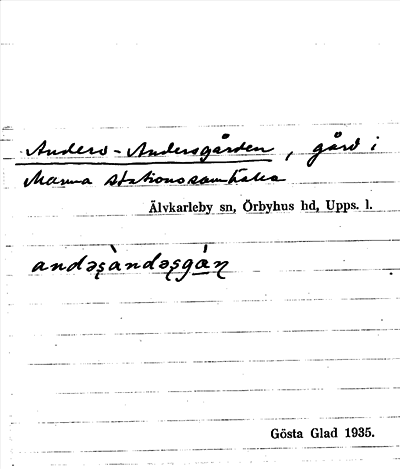 Anders-Andersgården, gård i
Marma stationssamhälle
Älvkarleby sn, Örbyhus hd, Upps. l.
andəʂàndəʂgá̱ɳ
Gösta Glad 1935.